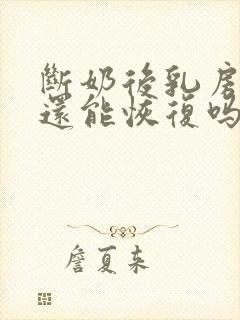 斷奶後乳房
還能恢復吗
詹夏来